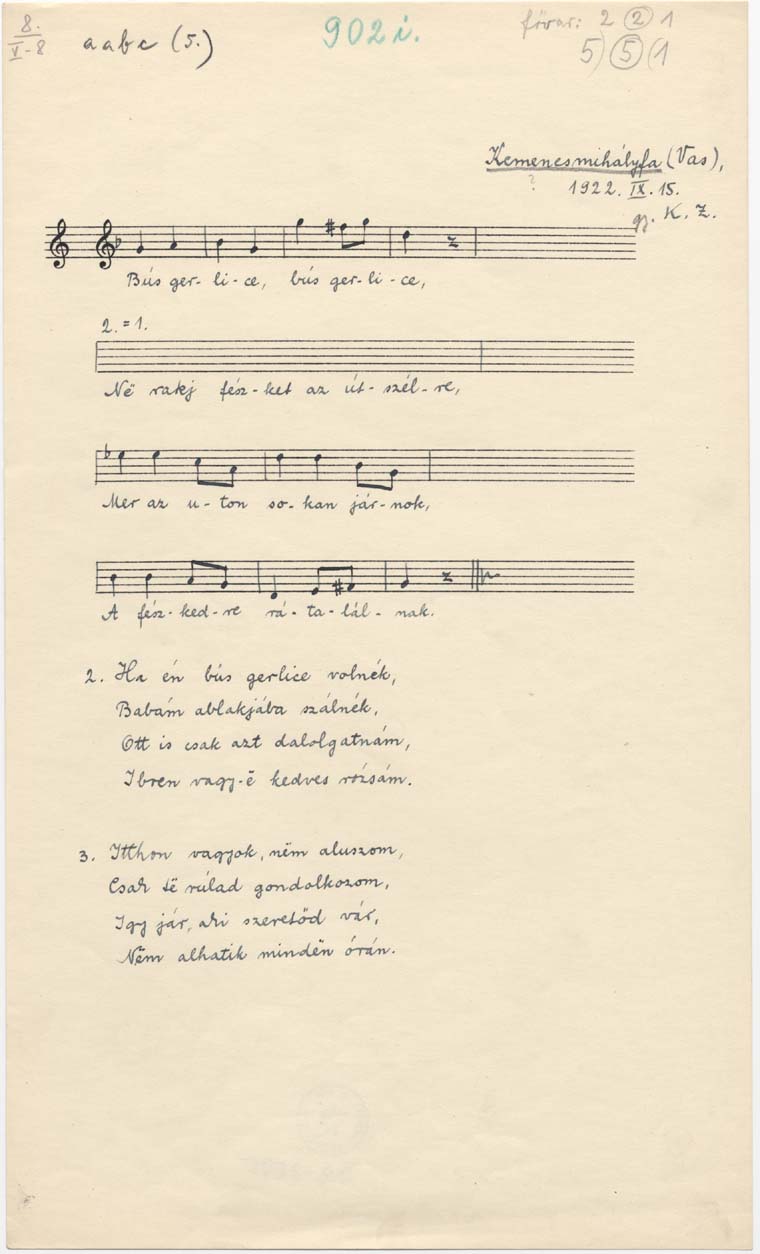 8.
V-8
a a b c (5.)
902 i.
fővar: 2 (2) 1
5) (5) (1
Kemenesmihályfa (Vas),
?
1922. IX. 15.
gy. K. Z.
Bús ger- li - ce, bús ger- li - ce,
2. = 1.
Në rakj fész - ket az út - szél - re,
Mer az u - ton so - kan jár - nok,
A fész - ked - re rá - ta - lál - nak.
2. Ha én bús gerlice volnék,
Babám ablakjába szálnék,
Ott is csak azt dalolgatnám,
Ibren vagy-ë kedves rózsám.
3. Itthon vagyok, nëm aluszom,
Csak të rúlad gondolkozom,
Igy jár, aki szeretőd vár,
Nëm alhatik mindën órán.